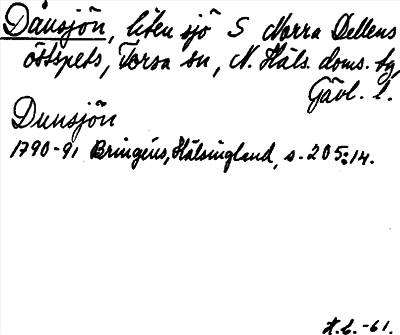 Dånsjön, liten sjö S Norra Dellens
östspets, Forsa sn, N. Häls. doms. tg,
Gävl. l.
Dunsjön
1790-91 Bringéus, Hälsingland, s. 205:14.
H.L. -61.